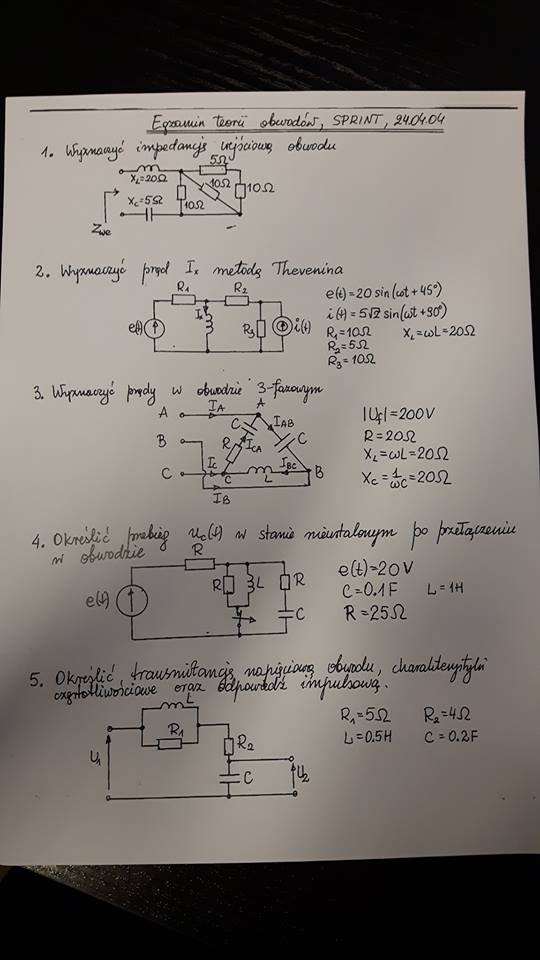 Egzamin teorii obwodów, SPRINT, 24.04.04
1. Wyznaczyć impedancję wejściową obwodu
5Ω
XL=20Ω
10Ω
10Ω
10Ω
XC=5Ω
Zwe
2. Wyznaczyć prąd Ix metodą Thevenina
R1
R2
Ix
e(t)
R3
i(t)
e(t)=20 sin(ωt+45°)
i(t)=5√2 sin(ωt+90°)
R1=10Ω XL=ωL=20Ω
R2=5Ω
R3=10Ω
3. Wyznaczyć prądy w obwodzie 3-fazowym
A
IA
A
B
C
IAB
C
R
ICA
C
IC
C
L
IBC
B
IB
|Uf|=200V
R=20Ω
XL=ωL=20Ω
XC=1/ωC=20Ω
4. Określić przebieg uc(t) w stanie nieustalonym po przełączeniu
w obwodzie
R
e(t)
R
L
R
C
e(t)=20V
C=0.1F L=1H
R=25Ω
5. Określić transmitancję napięciową obwodu, charakterystyki
częstotliwościowe oraz odpowiedź impulsową.
L
R1
R2
C
U1
U2
R1=5Ω R2=4Ω
L=0.5H C=0.2F